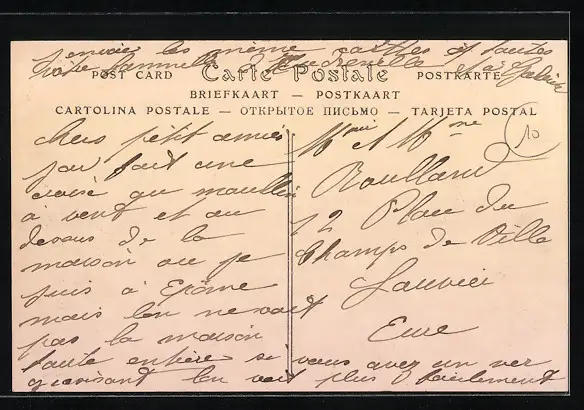 envoier les même cartes et toutes
POST CARD Carte Postale POSTKARTE
BRIEFKAART — POSTKAART
CARTOLINA POSTALE — ОТКРЫТОЕ ПИСЬМО — TARJETA POSTAL
10
chers petit amies
jai fait une
croix au moullin
a vent et au
desous de la
maison ou je
suis à Epône
mais lon ne voit
pas la maison
toute entière si vous avez un ver
grosisant lon voit plus facilement
Mr et Mme
Roulland
12 Place du
Champs de Ville
Louvier
Eure